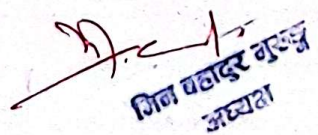 जित बहादुर गुरुङ्ग
अध्यक्ष